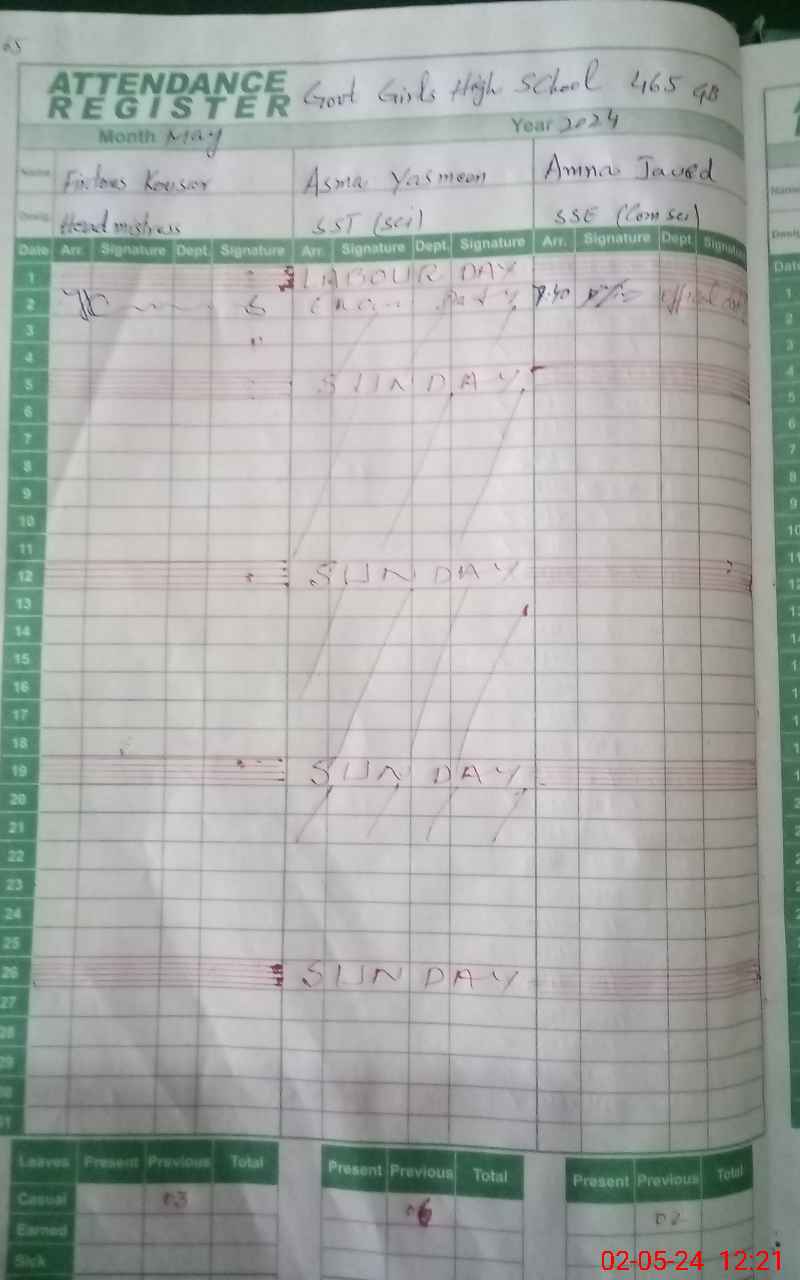 65
ATTENDANCE REGISTER Govt Girls High School 465 GB
Month May Year 2024
Name Firdous Kousar Asma Yasmeen Amna Javed
Desig. Headmistress SST (sci) SSE (Com sci)
Date Arr. Signature Dept. Signature Arr. Signature Dept. Signature Arr. Signature Dept. Signature
1 LABOUR DAY
2 7:40
3
4
5 SUNDAY
6
7
8
9
10
11
12 SUNDAY
13
14
15
16
17
18
19 SUNDAY
20
21
22
23
24
25
26 SUNDAY
27
28
29
30
31
Leaves Present Previous Total Present Previous Total Present Previous Total
Casual 03 06 02
Earned
Sick
02-05-24 12:21